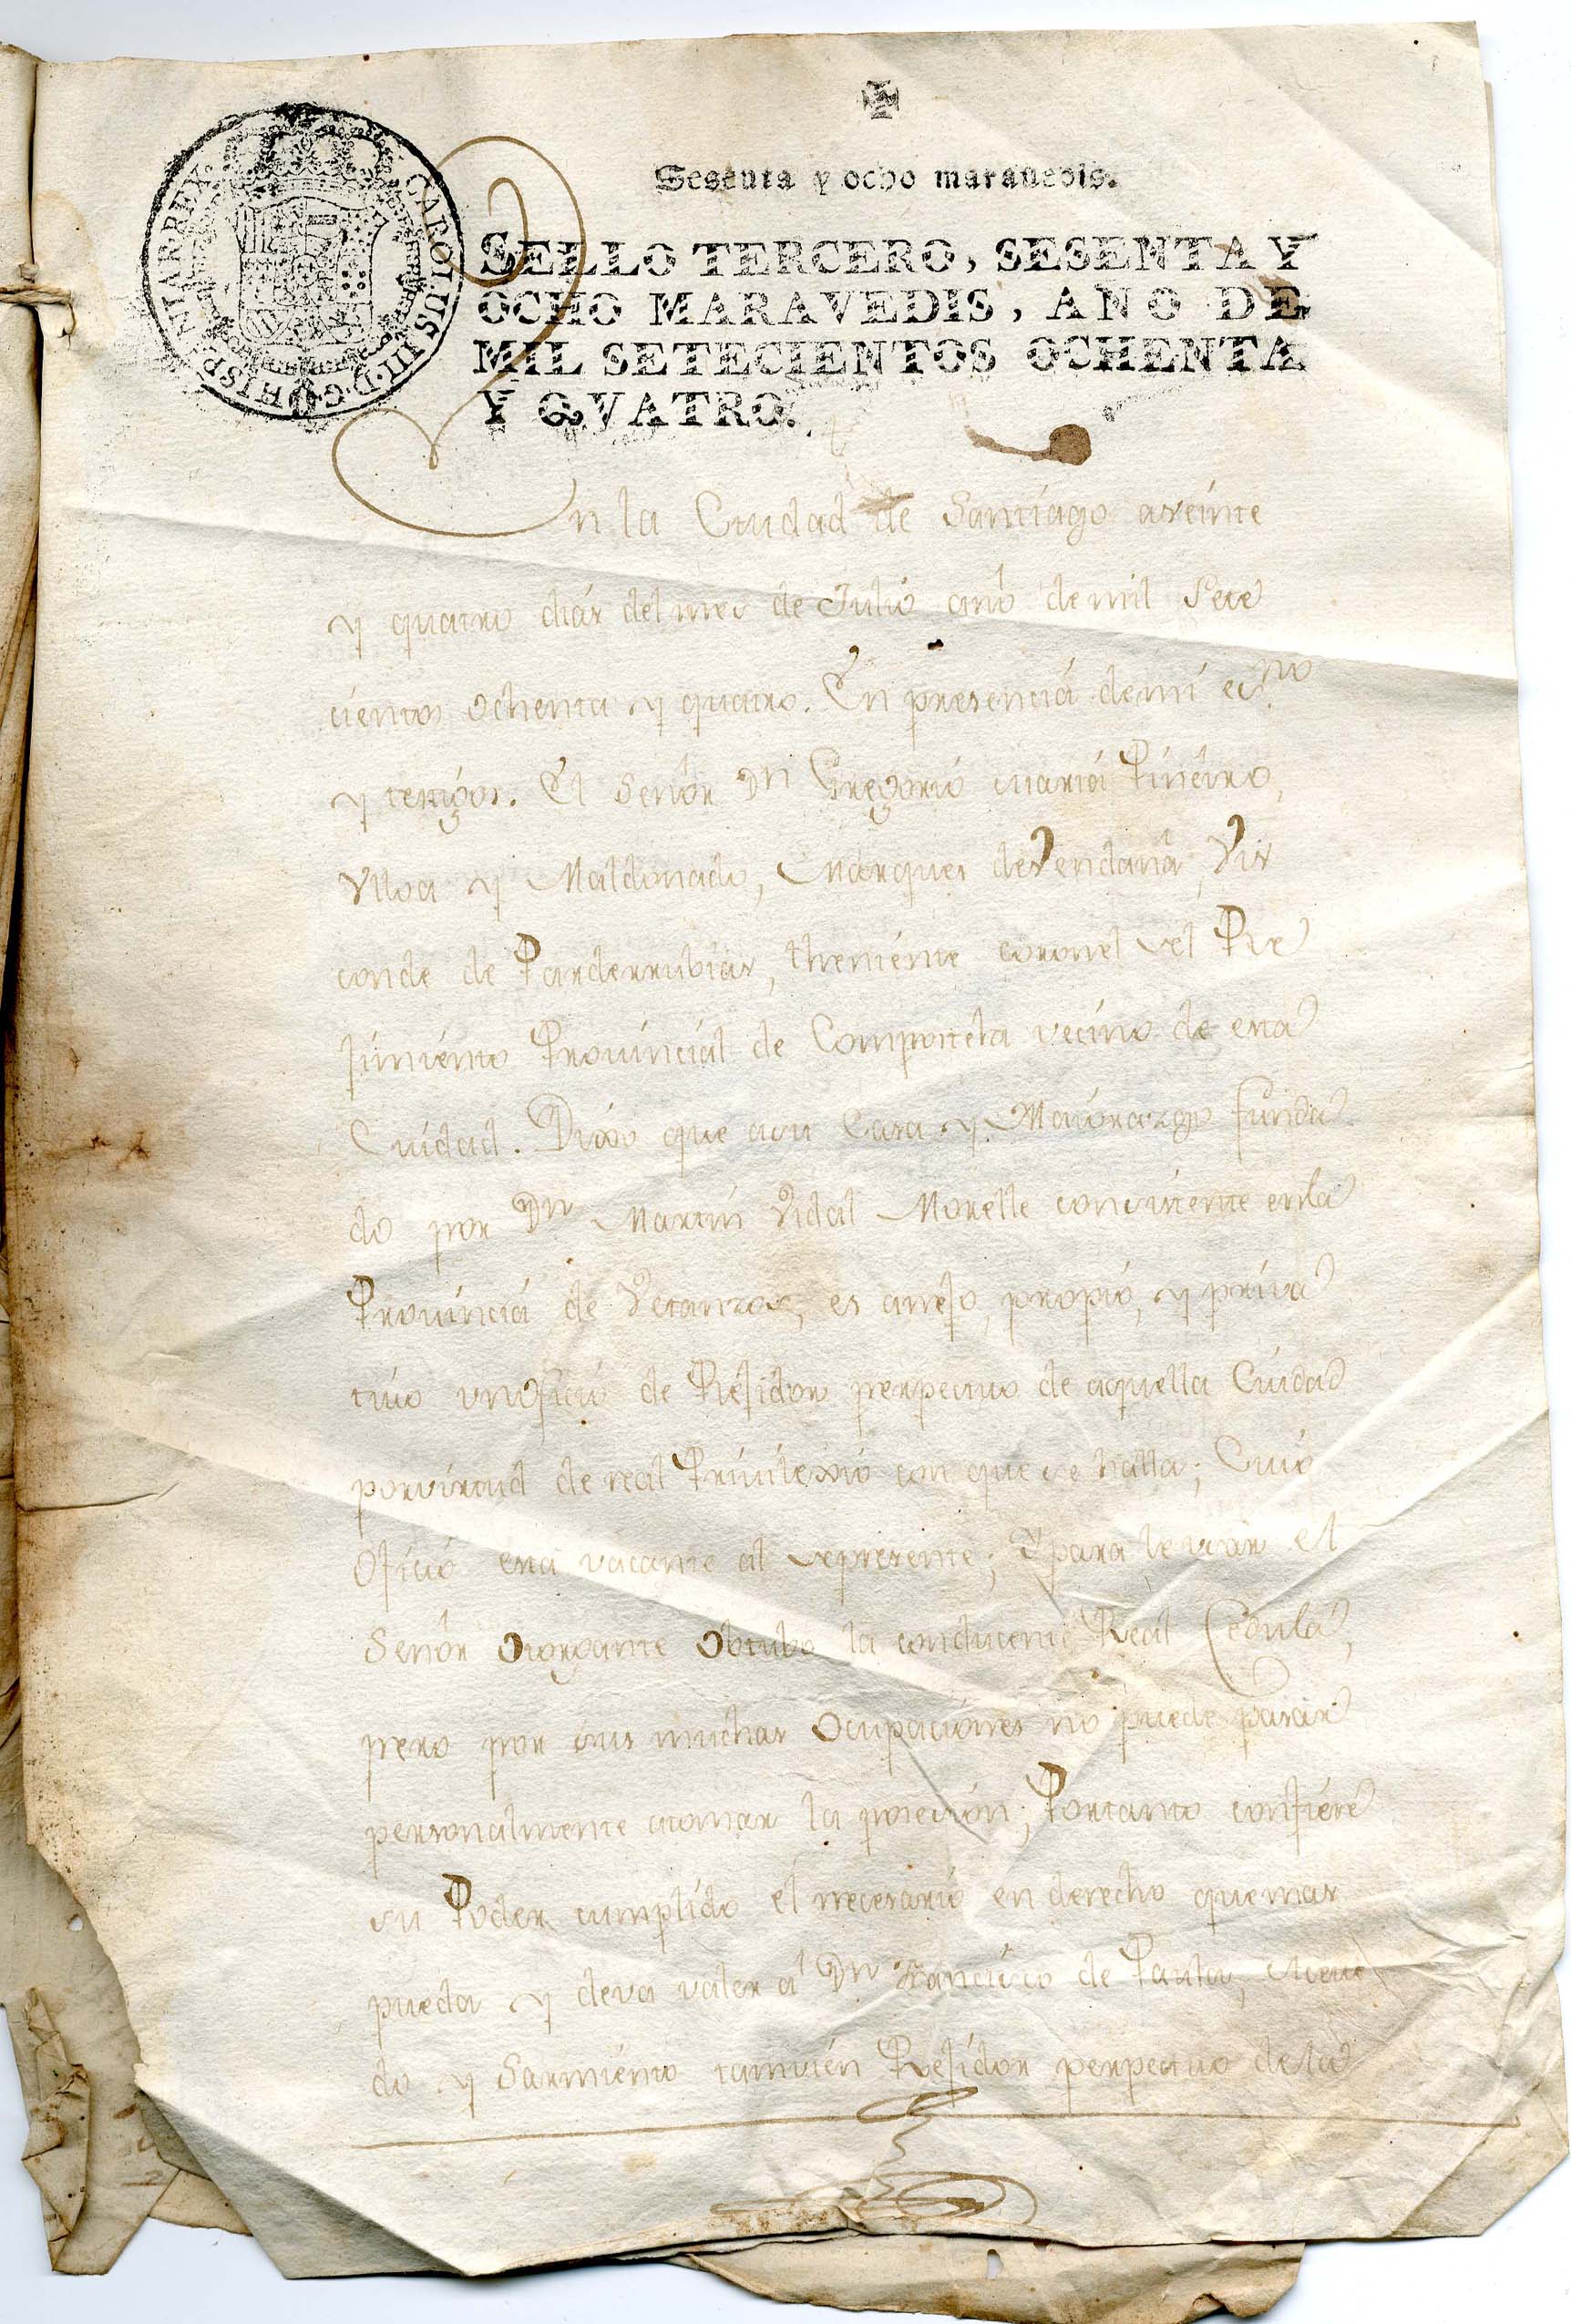 CAROLUS III·D·G·HISPANIAR·REX·
Sesenta y ocho maravedis.
SELLO TERCERO, SESENTA Y
OCHO MARAVEDIS, AÑO DE
MIL SETECIENTOS OCHENTA
Y QVATRO.
En la Ciudad de Santiago aveinte
y quatro diás del mes de Julió anô de mil sete
cientos ochenta y quatro. En presenciá demi es.no
y testigos. El Senôr Dn Gregorió mariá Pinêiro,
Ulloa y Maldonado, Marques de Vendanâ, Vis
conde de Parderrubiás, theniénte coronel del Re
Jimiénto Prouinciál de Compostela vecino de esta
Ciudad. Dixo que asu Casa y Maiórazgo funda
do por Dn Martin Vidal Morelle consistente enla
Prouinciá de Vetanzos, es anejo, propió, y priua
tiuo unofició de Rejidor perpetuo de aquella Ciudad
porvirtud de real Priuilexió con que se halla; Cuió
Ofició está vacante al depresente; Ypara le usár el
Senôr Otorgante Obtubo la conducente Real Cedula,
pero por sus muchas Ocupaciónes no puede pasár
personalmente atomar la posesión; Portanto confiére
su Poder cumplido el necesarió en derecho quemas
pueda y deva valer á Dn Francisco de Parda,
do y Sarmiénto tamvién Rejidor perpetuo dela